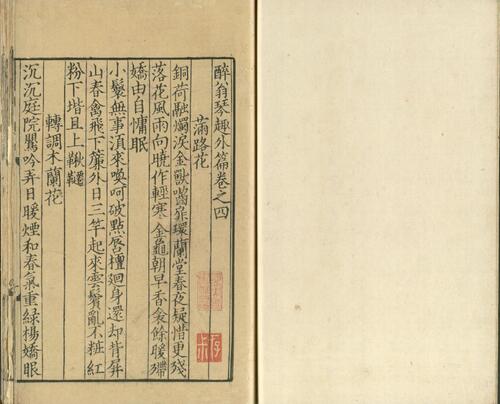 醉翁琴趣外篇卷之四
滿路花
銅荷融燭淚金獸嚙扉環蘭堂春夜疑惜更殘
落花風雨向曉作輕寒金龜朝早香衾餘暖殢
嬌由自慵眠
小鬟無事須來喚呵破點唇檀迴身還却背屏
山春禽飛下簾外日三竿起來雲鬢亂不粧紅
粉下堦且上鞦韆
轉調木蘭花
沉沉庭院鸎吟弄日暖煙和春氣重綠楊嬌眼